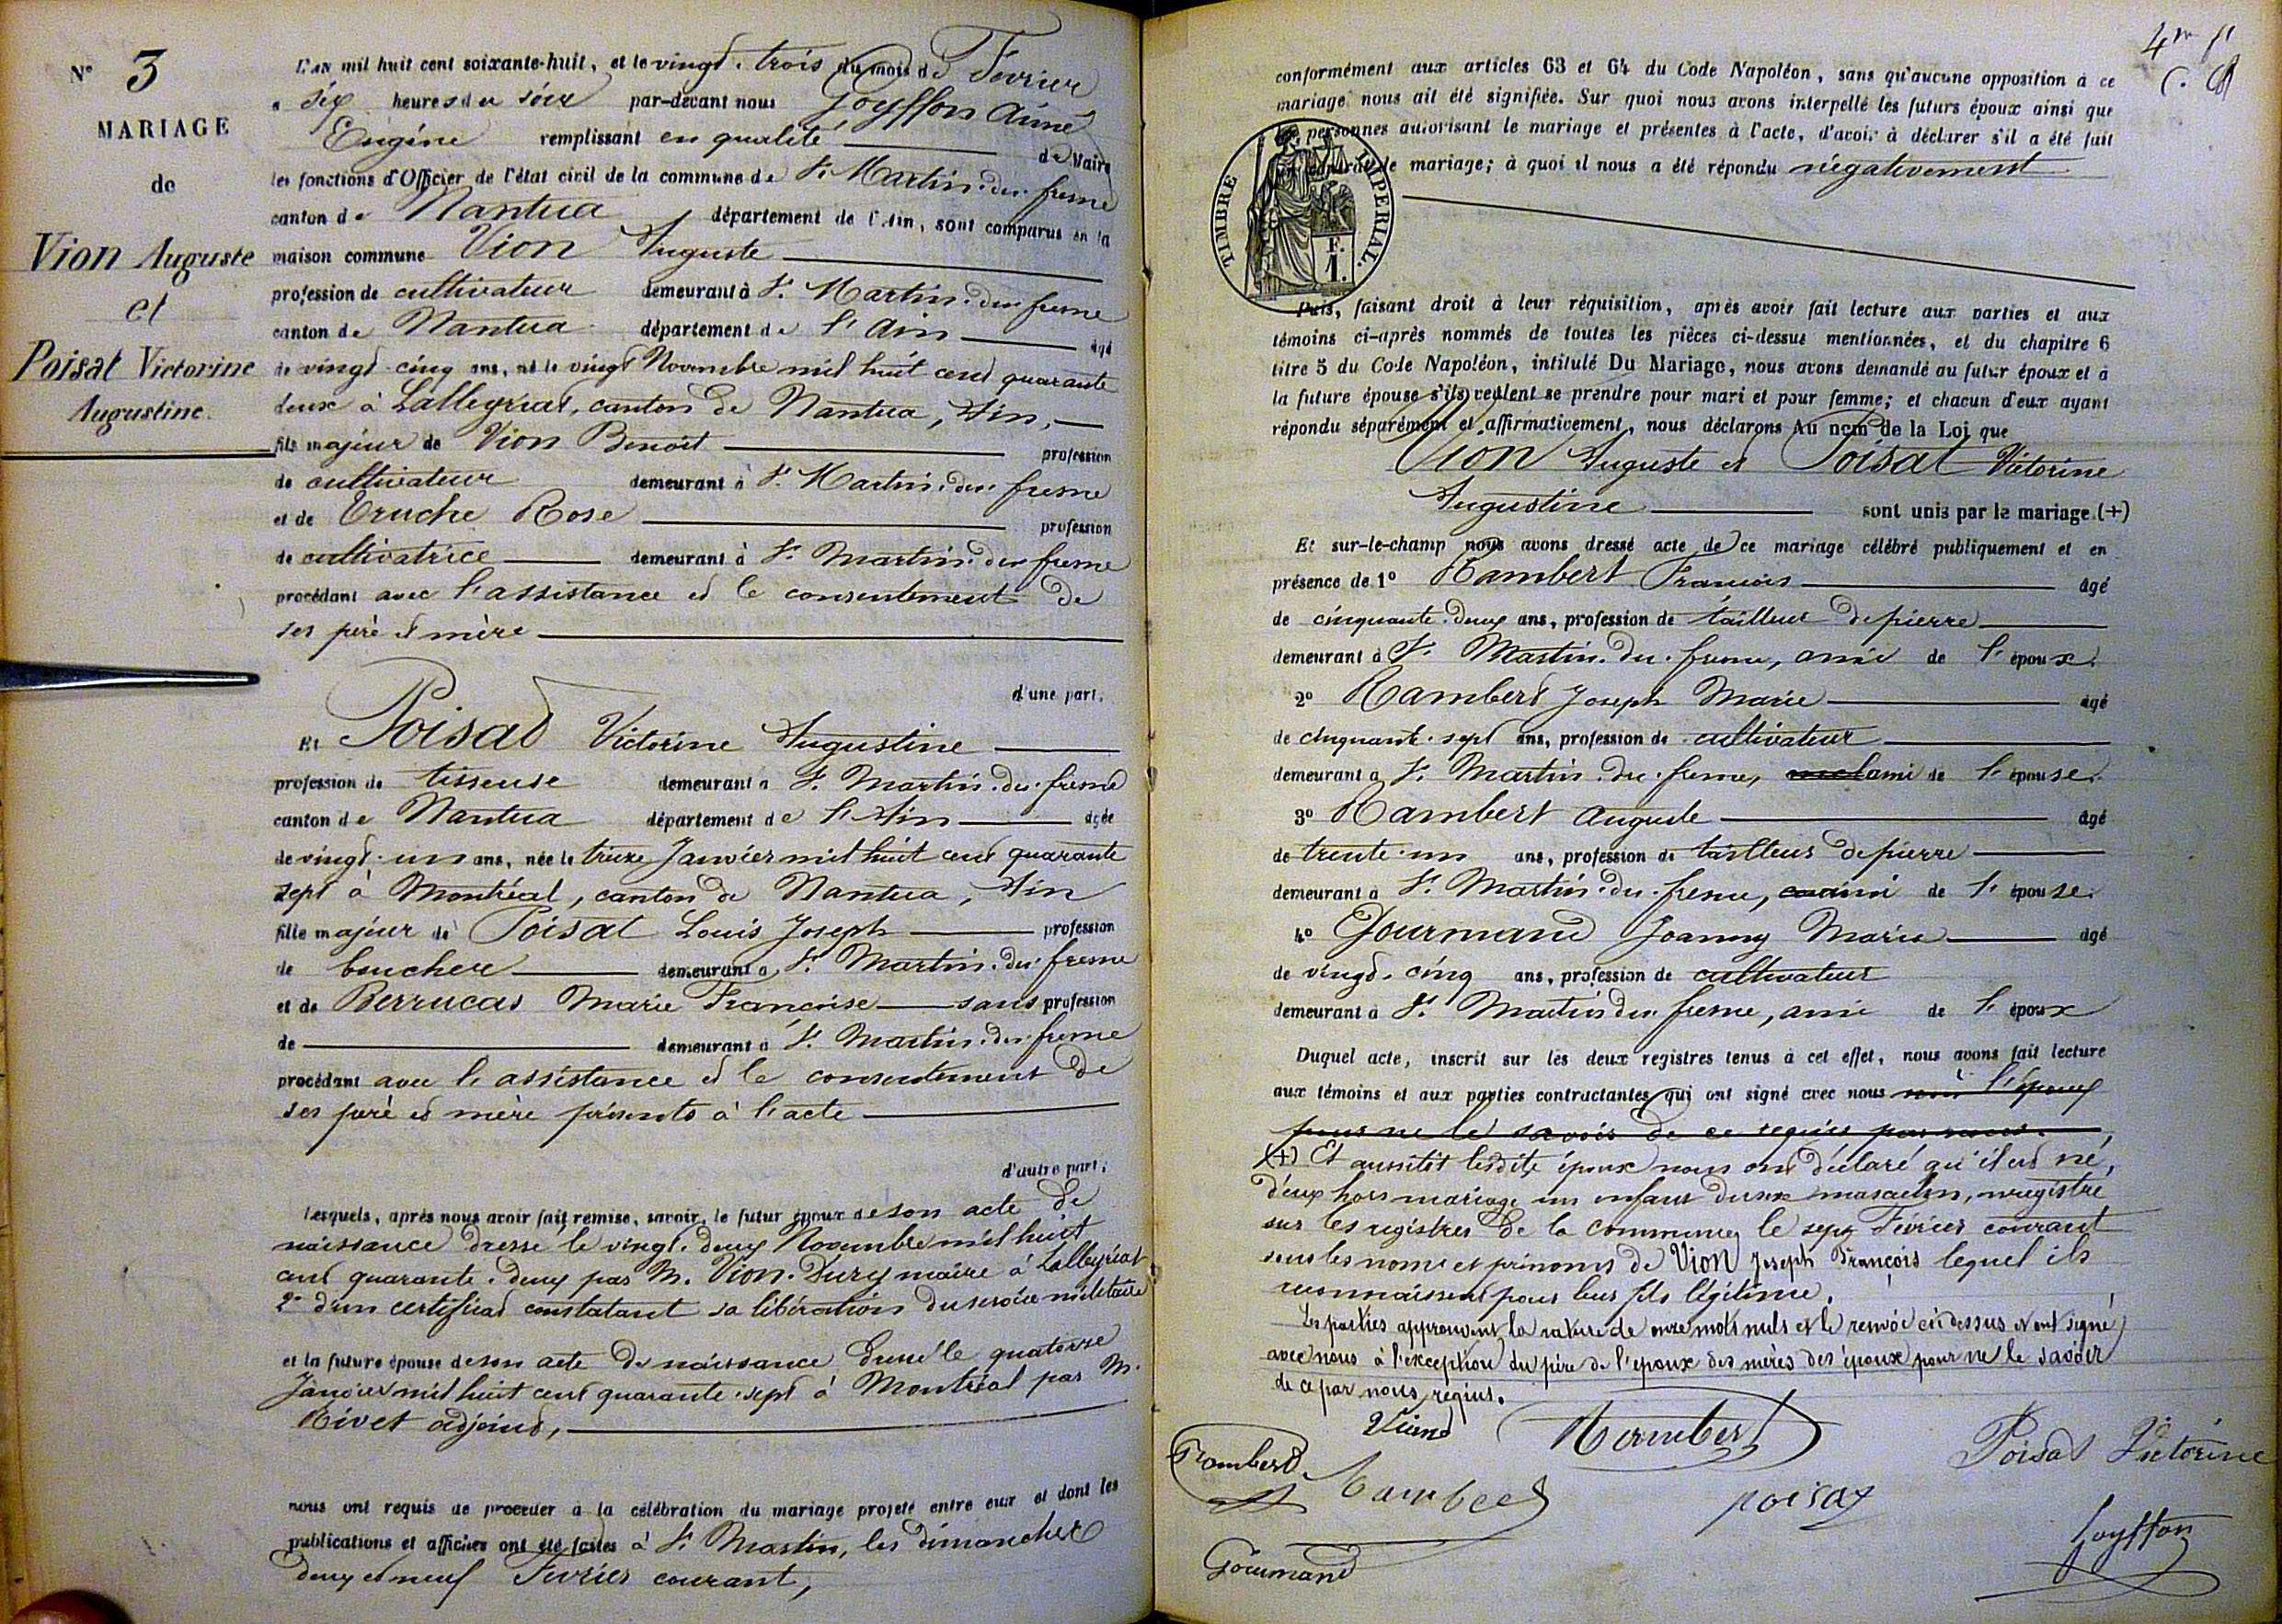 N° 3
MARIAGE
de
Vion Auguste
et
Poisat Victorine
Augustine.
L'AN mil huit cent soixante-huit, et le vingt. trois du mois de Février
a six heures du soir par-devant nous Goyffon Aimé
Eugène remplissant en qualité de Maire
les fonctions d'Officier de l'état civil de la commune de St Martin. du. fresne
canton de Nantua département de l'Ain, sont comparus en la
maison commune Vion Auguste
profession de cultivateur demeurant à St Martin. du. fresne
canton de Nantua département de l'Ain âgé
de vingt. cinq ans, né le vingt Novembre mil huit cent quarante
deux à Lalleyriat, canton de Nantua, Ain,
fils majeur de Vion Benoit profession
de cultivateur demeurant à St Martin. du. fresne
et de Truche Rose profession
de cultivatrice demeurant à St Martin. du. fresne
procédant avec l'assistance et le consentement de
ses père et mère
d'une part.
Et Poisat Victorine Augustine
profession de tisseuse demeurant à St Martin. du. fresne
canton de Nantua département de l'Ain âgée
de vingt. un ans, née le treize Janvier mil huit cent quarante
sept à Montréal, canton de Nantua, Ain
fille majeur de Poisat Louis Joseph profession
de boucher demeurant à St Martin. du. fresne
et de Berrucas Marie Françoise sans profession
de demeurant à St Martin. du. fresne
procédant avec l'assistance et le consentement de
ses père et mère présents à l'acte
d'autre part.
Lesquels, après nous avoir fait remise, savoir, le futur époux de son acte de
naissance dressé le vingt. deux Novembre mil huit
cent quarante. deux par M. Vion. Dury maire à Lalleyriat
2° d'un certificat constatant sa libération du service militaire
et la future épouse de son acte de naissance dressé le quatorze
Janvier mil huit cent quarante. sept à Montréal par M.
Rivet adjoint,
nous ont requis de procéder à la célébration du mariage projeté entre eux et dont les
publications et affiches ont été faites à St Martin, les dimanches
deux et neuf Février courant,
4me f
conformément aux articles 63 et 64 du Code Napoléon, sans qu'aucune opposition à ce
mariage nous ait été signifiée. Sur quoi nous avons interpellé les futurs époux ainsi que
les personnes autorisant le mariage et présentes à l'acte, d'avoir à déclarer s'il a été fait
un contrat de mariage; à quoi il nous a été répondu négativement
TIMBRE IMPERIAL.
F.
1.
Puis, faisant droit à leur réquisition, après avoir fait lecture aux parties et aux
témoins ci-après nommés de toutes les pièces ci-dessus mentionnées, et du chapitre 6
titre 5 du Code Napoléon, intitulé Du Mariage, nous avons demandé au futur époux et à
la future épouse s'ils veulent se prendre pour mari et pour femme; et chacun d'eux ayant
répondu séparément et affirmativement, nous déclarons Au nom de la Loi que
Vion Auguste et Poisat Victorine
Augustine sont unis par le mariage. (+)
Et sur-le-champ nous avons dressé acte de ce mariage célébré publiquement et en
présence de 1° Rambert François âgé
de cinquante. deux ans, profession de tailleur de pierre
demeurant à St Martin. du. fresne, ami de l'époux.
2° Rambert Joseph Marie âgé
de cinquante. sept ans, profession de cultivateur
demeurant à St Martin. du. fresne, ami de l'épouse.
3° Rambert Auguste âgé
de trente. un ans, profession de tailleur de pierre
demeurant à St Martin. du. fresne, ami de l'épouse.
4° Gourmand Joanny Marie âgé
de vingt. cinq ans, profession de cultivateur
demeurant à St Martin du fresne, ami de l'époux
Duquel acte, inscrit sur les deux registres tenus à cet effet, nous avons fait lecture
aux témoins et aux parties contractantes qui ont signé avec nous non l'époux
pour ne le savoir de ce requis par nous.
(+) Et aussitôt lesdits époux nous ont déclaré qu'il est né,
d'eux hors mariage un enfant du sexe masculin, enregistré
sur les registres de la commune, le sept Février courant
sous les noms et prénoms de Vion Joseph François lequel ils
reconnaissent pour leur fils légitime.
Les parties approuvent la rature de onze mots nuls et le renvoi ci-dessus et ont signé
avec nous à l'exception du père de l'époux des mères des époux pour ne le savoir
de ce par nous requis.
Viond Rambert Poisat Victorine
Rambert Rambert poisat
Goyffon
Gourmand